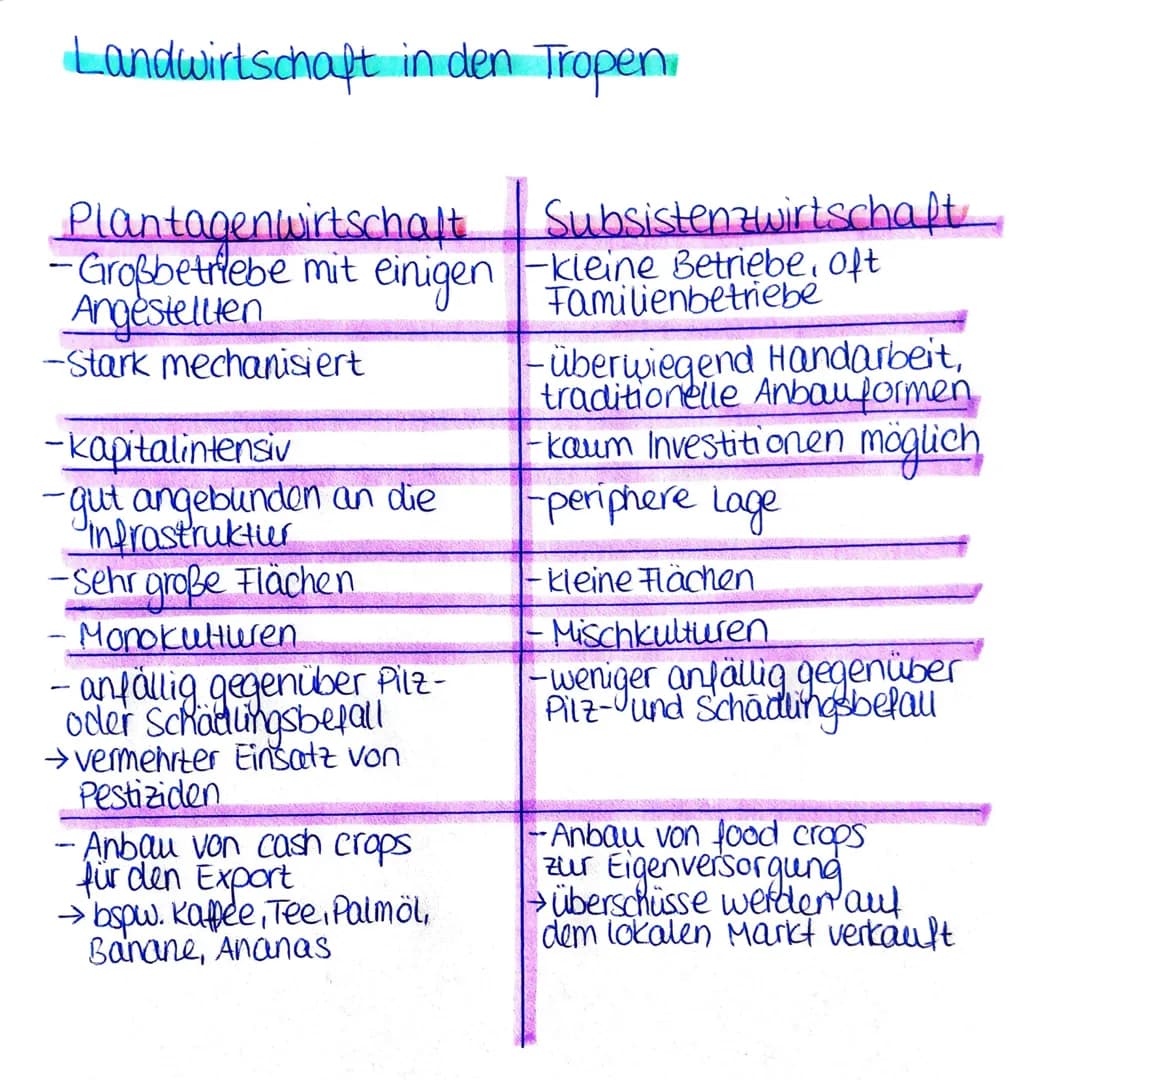 Landwirtschaft in den Tropen
Plantagenwirtschaft
Subsistenzwirtschaft
- Großbetriebe mit einigen
Angestellten
- kleine Betriebe, oft
Familienbetriebe
- stark mechanisiert
- überwiegend Handarbeit,
traditionelle Anbauformen
- kapitalintensiv
- kaum Investitionen möglich
- gut angebunden an die
Infrastruktur
- periphere Lage
- sehr große Flächen
- kleine Flächen
- Monokulturen
- Mischkulturen
- anfällig gegenüber Pilz-
oder Schädlingsbefall
→ vermehrter Einsatz von
Pestiziden
- weniger anfällig gegenüber
Pilz- und Schädlingsbefall
- Anbau von cash crops
für den Export
→ bspw. Kaffee, Tee, Palmöl,
Banane, Ananas
- Anbau von food crops
zur Eigenversorgung
→ überschüsse werden auf
dem lokalen Markt verkauft